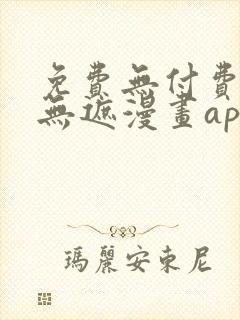 免費無付費
無遮漫畫ap
瑪麗安東尼